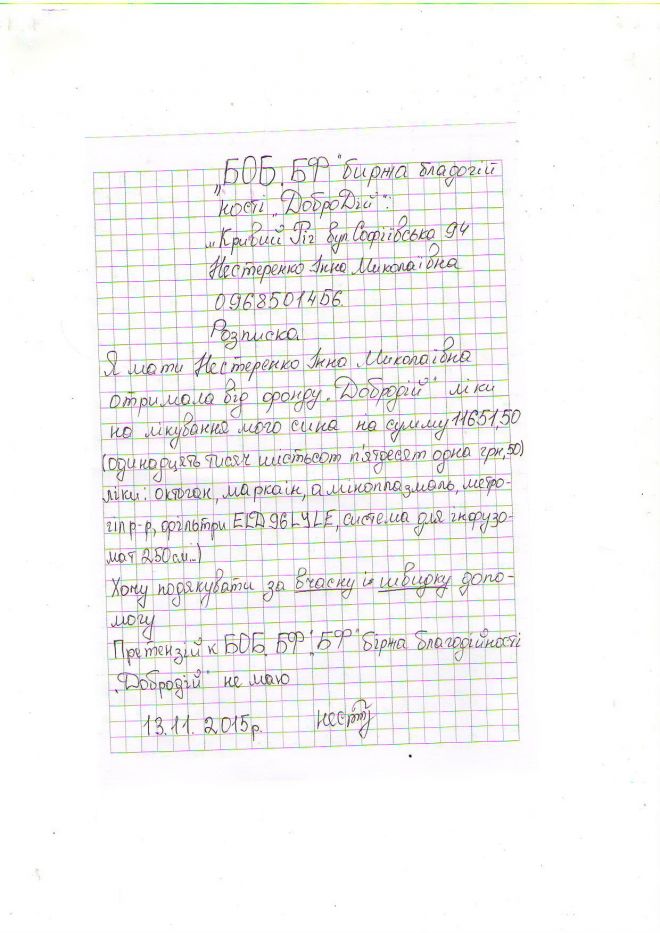 „БОБ, БФ "биржа благодій
ності „ДоброДій":
„Кривий Ріг вул Софіївська 94
Нестеренко Інна Миколаївна
0968501456.
Розписка
Я мати Нестеренко Інна Миколаївна
отримала від фонду „Добродій" ліки
на лікування мого сина на сумму 11651,50
(одинадцять тисяч шистьсот п'ятдесят одна грн,50)
ліки: октаган, маркаін, аміноплазмаль, метро-
гіл р-р, фільтри ELD96LYLE, система для інфузо-
мат 250см...)
Хочу подякувати за вчасну і швидку допо-
могу
Претензій к БОБ, БФ „БФ" біржа благодійності
„Добродій" не маю
13.11. 2015р.